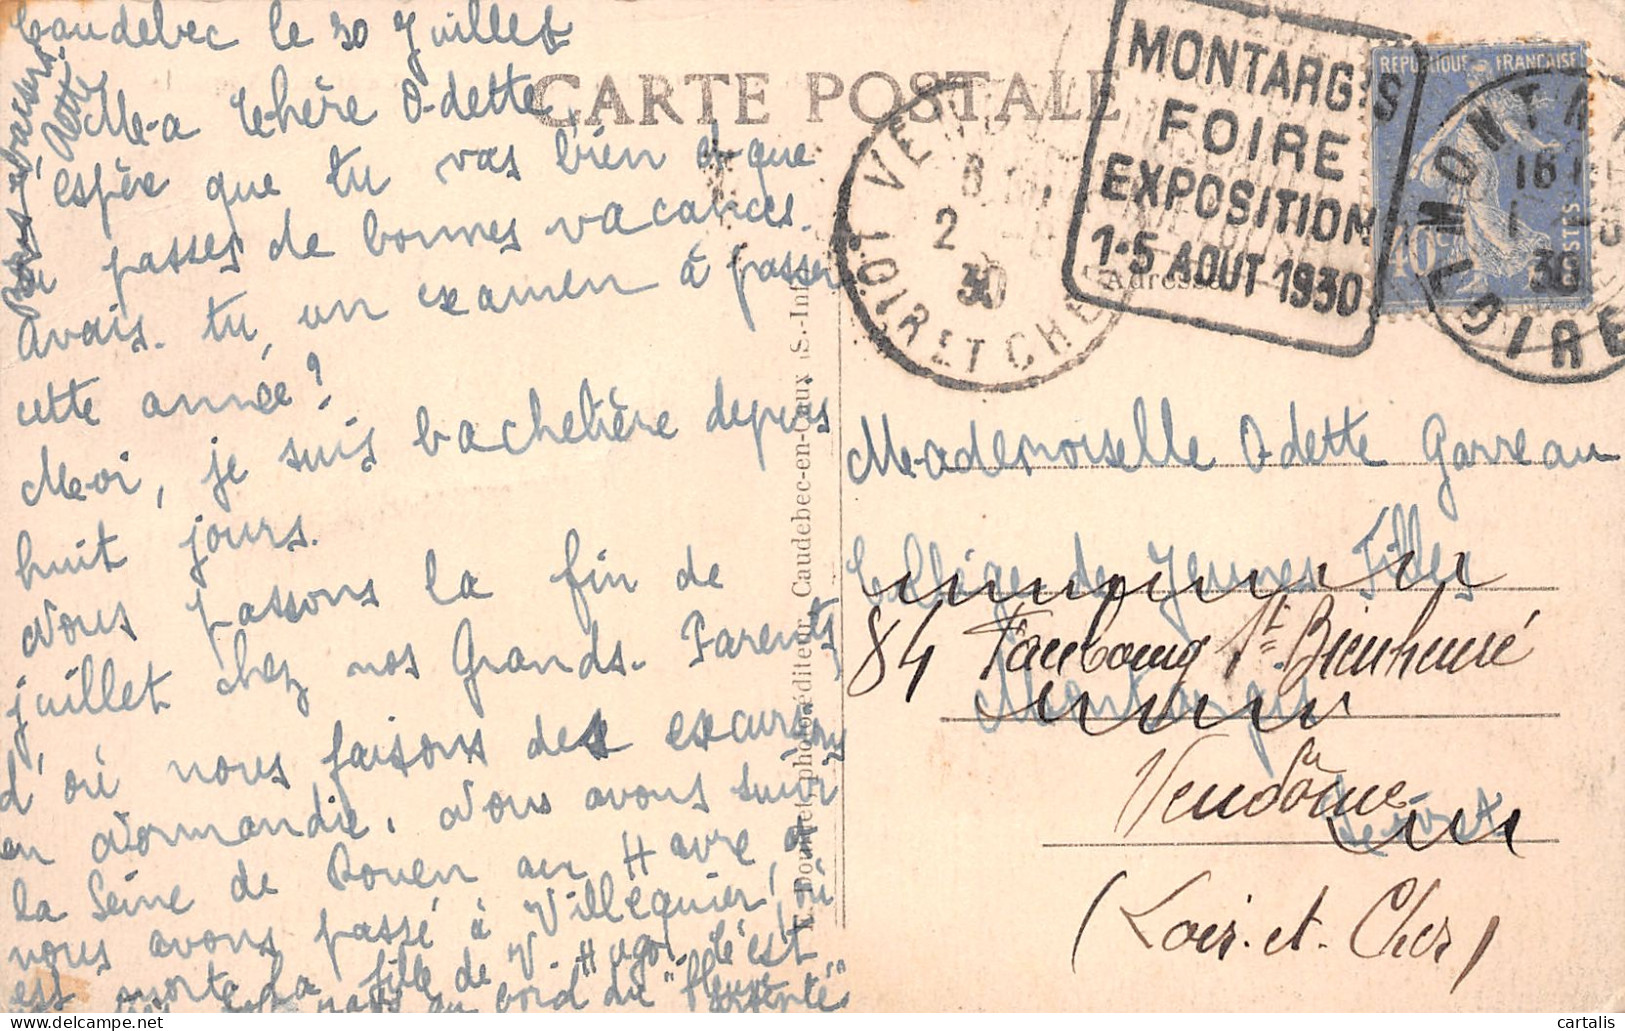 Caudebec le 30 Juillet
CARTE POSTALE
Ma Chère Odette,
J'espère que tu vas bien et que
tu passes de bonnes vacances.
Avais-tu un examen à passer
cette année?
Moi, je suis bachelière depuis
huit jours.
Nous passons la fin de
juillet chez nos Grands-Parents,
d'où nous faisons des excursions
en Normandie. Nous avons suivi
la Seine de Rouen au Havre, et
nous avons passé à Villequier, où
est morte la fille de V. Hugo. C'est
au bord du "fleuve
Bons baisers.
E. Doumet photo-éditeur, Caudebec-en-Caux (S.-Inf
MONTARGIS
FOIRE
EXPOSITION
1-5 AOUT 1930
VEN
LOIR ET CHER
2
30
REPUBLIQUE FRANÇAISE
POSTES
40c
MONTAR
16
30
LOIRET
Adresse
Mademoiselle Odette Garreau
Collège de Jeunes Filles
84 Faubourg St Bienheuré
Montargis
Vendôme
Loiret
(Loir-et-Cher)
cartalis